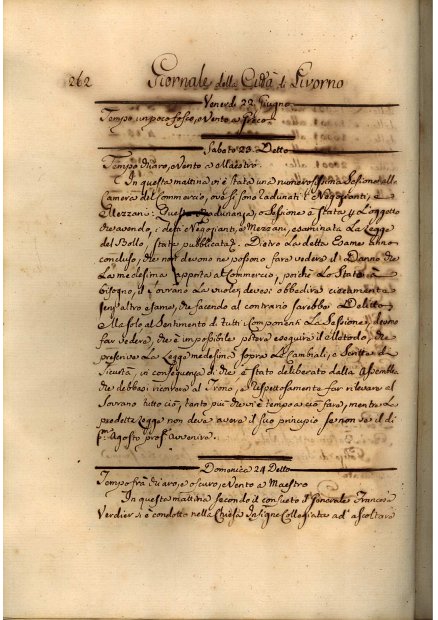 262 Giornale della Città di Livorno
Venerdì 22 Giugno
Tempo un poco fosco, e Vento a Greco
Sabato 23 Detto
Tempo chiaro, e Vento a Maestro.
In questa mattina vi è stata una numerosissima Sessione alla
Camera del Commercio, ove si sono radunati i Negozianti, e
Mezzani: Questa Radunanza, o Sessione è stata p. L'oggetto
che avendo i detti Negozianti, e Mezzani, esaminata La Legge
del Bollo, stata pubblicata. Dietro La detta Esame anno
concluso, che non devono ne possono fare vedere il Danno che
La medesima apporta al Commercio, poichè Lo Stato à
bisogno, e il Sovrano La vuole, devesi obbedire ciecamente
senz'altro esame, che facendo al contrario sarebbe Delitto,
Ma solo al Sentimento di tutti i Componenti La Sessione, devono
far vedere, che è impossibile potere eseguire il Metodo, che
prescrive La Legge medesima sopra Le Cambiali, e Scritte di
Sicurtà, in conseguenza di che è stato deliberato dalla Assemblea
che debbasi ricorrere al Trono, e rispettosamente far rilevare al
Sovrano tutto ciò, tanto più che vi è tempo a ciò fare, mentre La
predetta Legge non deve avere il suo principio se non che il dì
p.mo Agosto pross.o avvenire.
Domenica 24 Detto
Tempo frà chiaro, e oscuro, e Vento a Maestro
In questa mattina secondo il consueto il Generale Francese
Verdier si è condotto nella Chiesa Insigne Collegiata ad' ascoltare